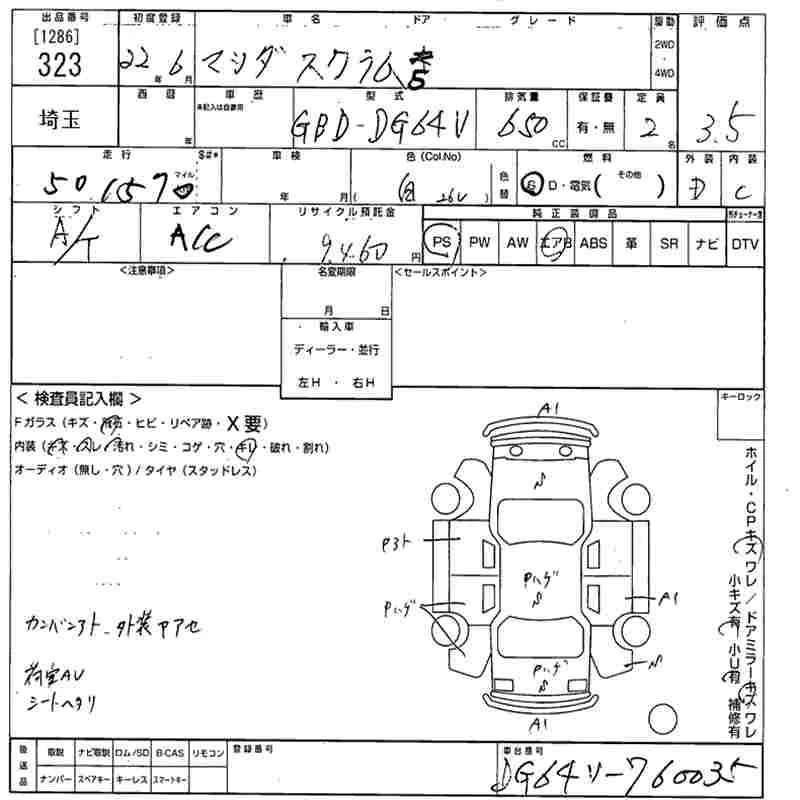 出品番号 初度登録 車名 ドア グレード 駆動 評価点
[1286]
323 22年 6月 マツダ スクラム 5 2WD・4WD
埼玉 西暦 年 車歴 未記入は自家用 型式 排気量 保証書 定員
GBD-DG64V 650 CC 有・無 2名 3.5
走行 S#* 車検 色(Col.No) 色替 燃料 外装 内装
50,157 マイル 年 月 白 26V G D・電気( その他 ) D C
シフト エアコン リサイクル預託金 純正装備品
A/T A/C 9,460円 PS PW AW エアB ABS 革 SR ナビ DTV
<注意事項> 名変期限 <セールスポイント>
月 日
輸入車
ディーラー・並行
左H ・ 右H
< 検査員記入欄 > キーロック
Fガラス(キズ・ ・ヒビ・リペア跡・X要)
内装(キズ・スレ・汚れ・シミ・コゲ・穴・キレ・破れ・割れ)
オーディオ(無し・穴)/タイヤ(スタッドレス)
A1
P3ト
Pハゲ
Pハゲ
A1
Pハゲ
A1
カンバンアト 外装ヤアセ
荷室AU
シートヘタリ
ホイル・CPキズ ワレ/ドアミラーキズ ワレ
小キズ有 小U有 補修有
後送品 取説 ナビ取説 ロム/SD B-CAS リモコン 登録番号 車台番号
ナンバー スペアキー キーレス スマートキー DG64V-760035